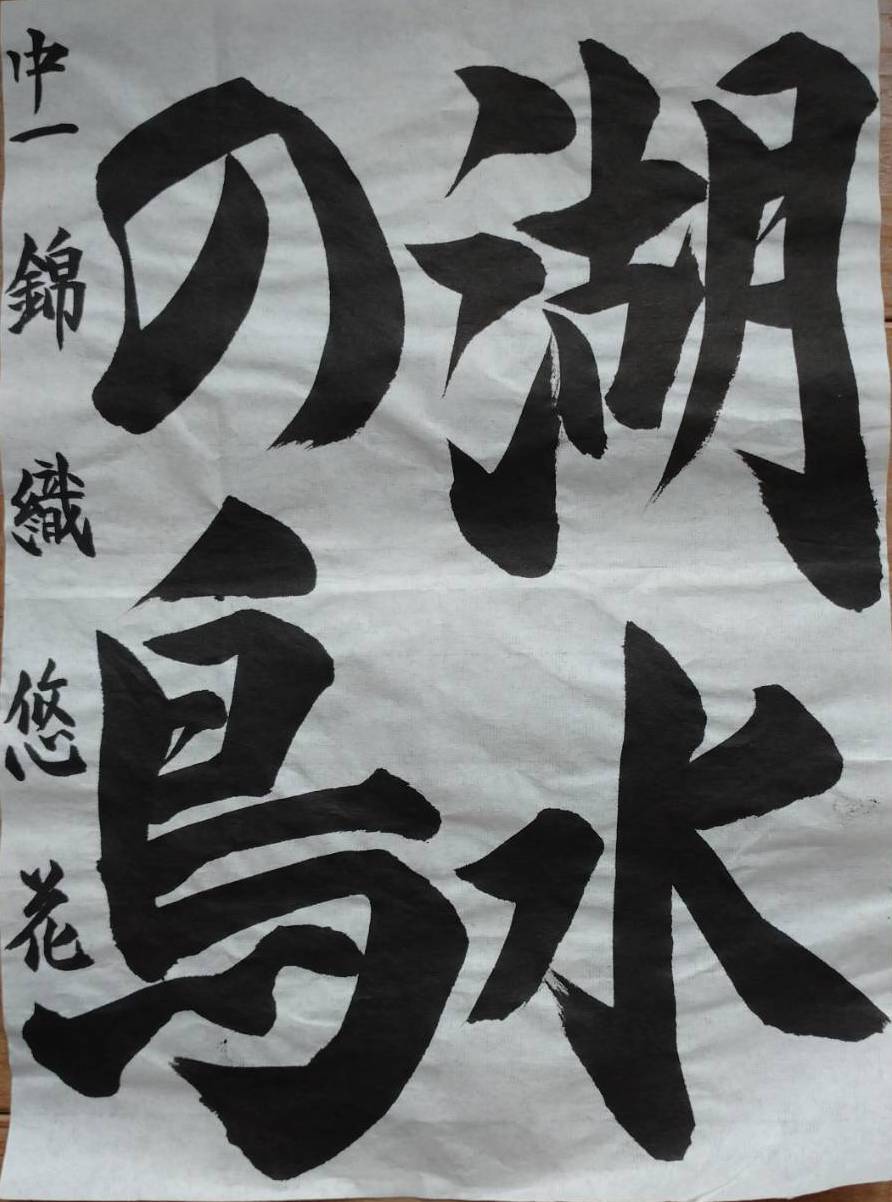 湖水
の鳥
中一 錦織悠花